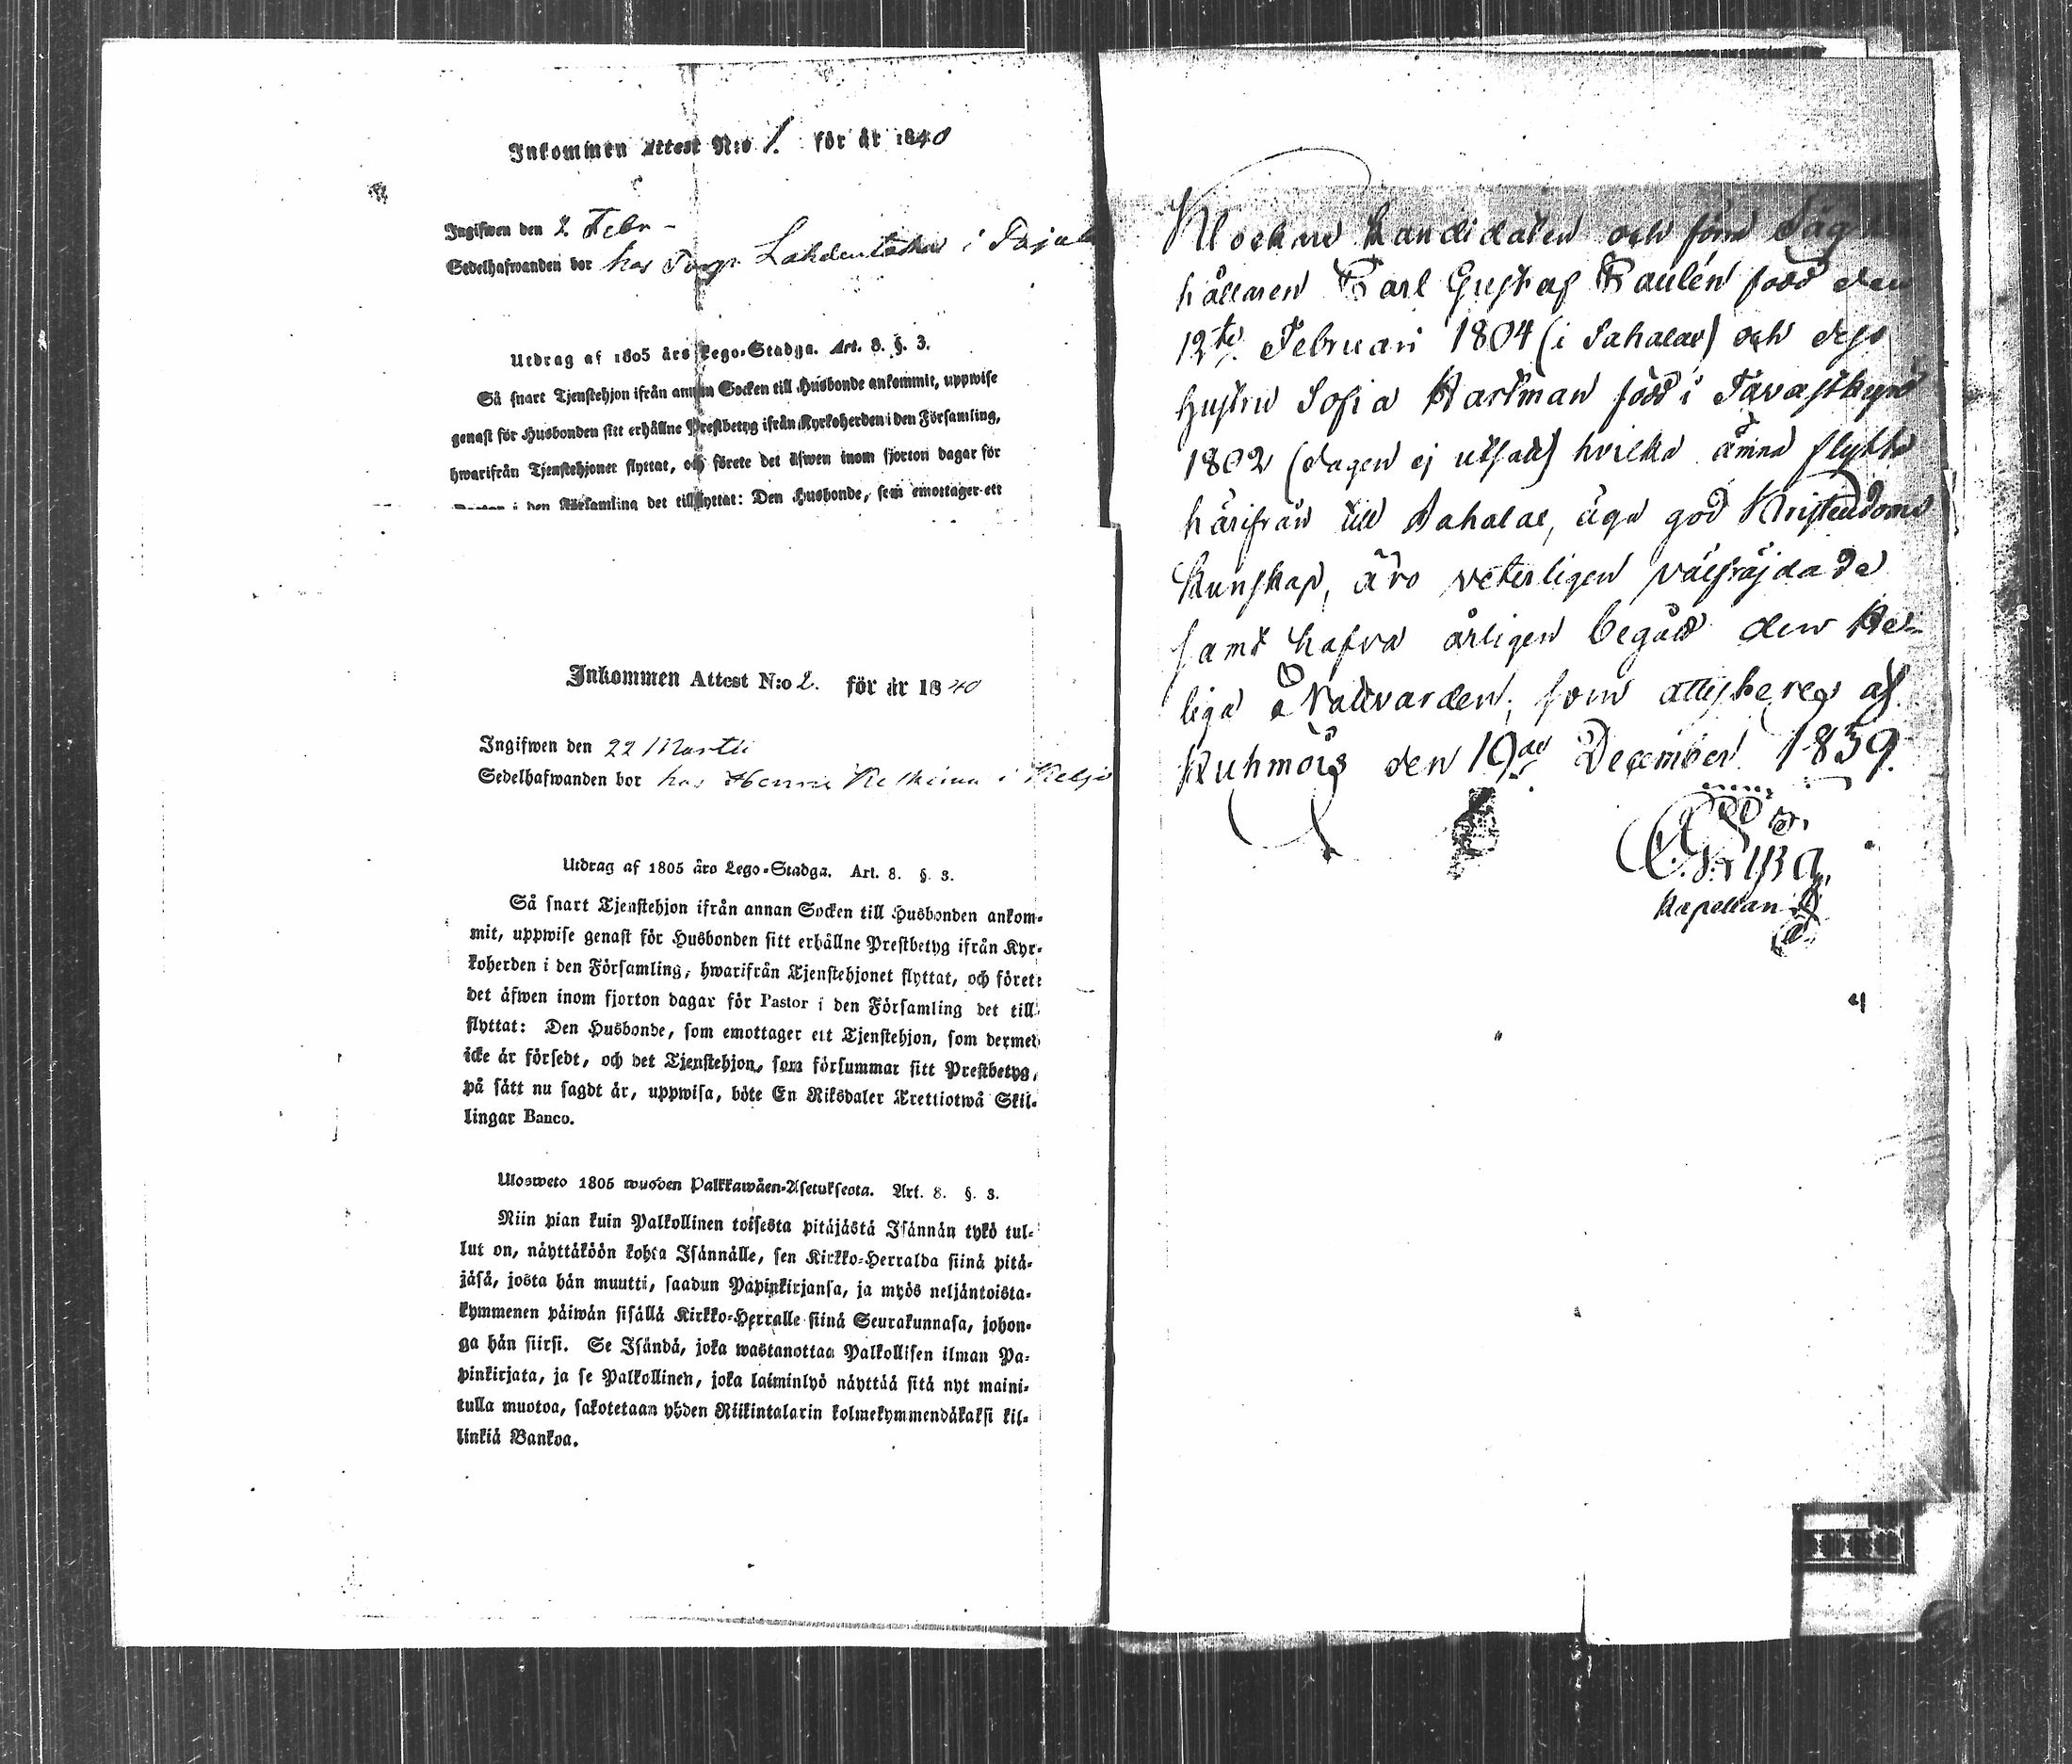 Inkommen Attest N:o 1. för år 1840
Ingifwen den 2 Febr -
Sedelhafwanden bor hos Torp. i
Utdrag af 1805 års Lego-Stadga. Art. 8. §. 3.
Så snart Tjenstehjon ifrån annan Socken till Husbonde ankommit, uppwise
genast för Husbonden sitt erhållne Prestbetyg ifrån Kyrkoherden i den Församling,
hwarifrån Tjenstehjonet flyttat, och förete det äfwen inom fjorton dagar för
Pastor i den Församling det tillflyttat: Den Husbonde, som emottager ett
Inkommen Attest N:o 2. för år 1840
Ingifwen den 22 Martii
Sedelhafwanden bor hos i
Utdrag af 1805 års Lego-Stadga. Art. 8. §. 3.
Så snart Tjenstehjon ifrån annan Socken till Husbonden ankom-
mit, uppwise genast för Husbonden sitt erhållne Prestbetyg ifrån Kyr-
koherden i den Församling, hwarifrån Tjenstehjonet flyttat, och förete
det äfwen inom fjorton dagar för Pastor i den Församling det till-
flyttat: Den Husbonde, som emottager ett Tjenstehjon, som dermed
icke är försedt, och det Tjenstehjon, som försummar sitt Prestbetyg,
på sätt nu sagdt är, uppwisa, böte En Riksdaler Trettiotwå Skil-
lingar Banco.
Ulosweto 1805 wuoden Palkkawäen-Asetuksesta. Art. 8. §. 3.
Niin pian kuin Palkollinen toisesta pitäjästä Isännän tykö tul-
lut on, näyttäköön kohta Isännälle, sen Kirkko-Herralda siinä pitä-
jäsä, josta hän muutti, saadun Papinkirjansa, ja myös neljäntoista-
kymmenen päiwän sisällä Kirkko-Herralle siinä Seurakunnasa, johon-
ga hän siirsi. Se Isändä, joka wastanottaa Palkollisen ilman Pa-
pinkirjata, ja se Palkollinen, joka laiminlyö näyttää sitä nyt maini-
tulla muotoa, sakotetaan yhden Riikintalarin kolmekymmendäkaksi kil-
linkiä Bankoa.
Klockare Kandidaten och förra
hållaren Carl Gustaf Paulén född den
12te Februari 1804 (i Sahalax) och dess
hustru Sofia Hartman född i Tavastkyro
1802 (dagen ej utsatt) hvilka ämna flytta
härifrån till Sahalax, äga god Kristendoms
kunskap, äro veterligen välfräjdade
samt hafva årligen begått den He-
liga Nattvarden; som attesteres af
Kuhmois den 19de December 1839.
Kapellan